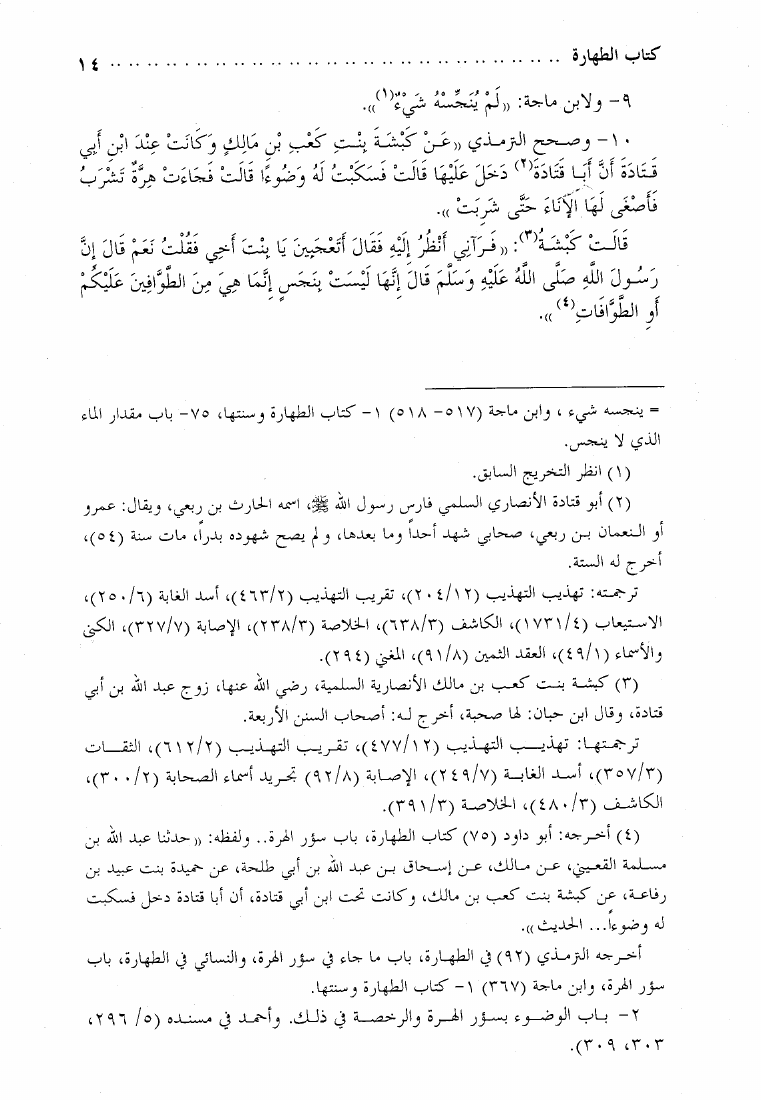 كتاب الطهارة .................................................. ١٤
٩- ولابن ماجة: «لَمْ يُنَجِّسْهُ شَيْءٌ(١)».
١٠- وصحح الترمذي «عَنْ كَبْشَةَ بِنْتِ كَعْبِ بْنِ مَالِكٍ وَكَانَتْ عِنْدَ ابْنِ أَبِي
قَتَادَةَ أَنَّ أَبَا قَتَادَةَ(٢) دَخَلَ عَلَيْهَا قَالَتْ فَسَكَبْتُ لَهُ وَضُوءًا قَالَتْ فَجَاءَتْ هِرَّةٌ تَشْرَبُ
فَأَصْغَى لَهَا الْآنَاءَ حَتَّى شَرِبَتْ».
قَالَتْ كَبْشَةُ(٣): «فَرَآنِي أَنْظُرُ إِلَيْهِ فَقَالَ أَتَعْجَبِينَ يَا بِنْتَ أَخِي فَقُلْتُ نَعَمْ قَالَ إِنَّ
رَسُولَ اللَّهِ صَلَّى اللَّهُ عَلَيْهِ وَسَلَّمَ قَالَ إِنَّهَا لَيْسَتْ بِنَجَسٍ إِنَّمَا هِيَ مِنَ الطَّوَّافِينَ عَلَيْكُمْ
أَوِ الطَّوَّافَاتِ(٤)».
= ينجسه شيء ، وابن ماجة (٥١٧- ٥١٨) ١- كتاب الطهارة وسنتها، ٧٥- باب مقدار الماء
الذي لا ينجس.
(١) انظر التخريج السابق.
(٢) أبو قتادة الأنصاري السلمي فارس رسول الله ﷺ، اسمه الحارث بن ربعي، ويقال: عمرو
أو النعمان بن ربعي، صحابي شهد أحداً وما بعدها، ولم يصح شهوده بدراً، مات سنة (٥٤)،
أخرج له الستة.
ترجمته: تهذيب التهذيب (٢٠٤/١٢)، تقريب التهذيب (٤٦٣/٢)، أسد الغابة (٢٥٠/٦)،
الاستيعاب (١٧٣١/٤)، الكاشف (٦٣٨/٣)، الخلاصة (٢٣٨/٣)، الإصابة (٣٢٧/٧)، الكنى
والأسماء (٤٩/١)، العقد الثمين (٩١/٨)، المغني (٢٩٤).
(٣) كبشة بنت كعب بن مالك الأنصارية السلمية، رضي الله عنها، زوج عبد الله بن أبي
قتادة، وقال ابن حبان: لها صحبة، أخرج له: أصحاب السنن الأربعة.
ترجمتها: تهذيب التهذيب (٤٧٧/١٢)، تقريب التهذيب (٦١٢/٢)، الثقات
(٣٥٧/٣)، أسد الغابة (٢٤٩/٧)، الإصابة (٩٢/٨) تجريد أسماء الصحابة (٣٠٠/٢)،
الكاشف (٤٨٠/٣)، الخلاصة (٣٩١/٣).
(٤) أخرجه: أبو داود (٧٥) كتاب الطهارة، باب سؤر الهرة.. ولفظه: «حدثنا عبد الله بن
مسلمة القعيني، عن مالك، عن إسحاق بن عبد الله بن أبي طلحة، عن حميدة بنت عبيد بن
رفاعة، عن كبشة بنت كعب بن مالك، وكانت تحت ابن أبي قتادة، أن أبا قتادة دخل فسكبت
له وضوءاً... الحديث».
أخرجه الترمذي (٩٢) في الطهارة، باب ما جاء في سؤر الهرة، والنسائي في الطهارة، باب
سؤر الهرة، وابن ماجة (٣٦٧) ١- كتاب الطهارة وسنتها.
٢- باب الوضوء بسؤر الهرة والرخصة في ذلك. وأحمد في مسنده (٥/ ٢٩٦،
٣٠٣، ٣٠٩).